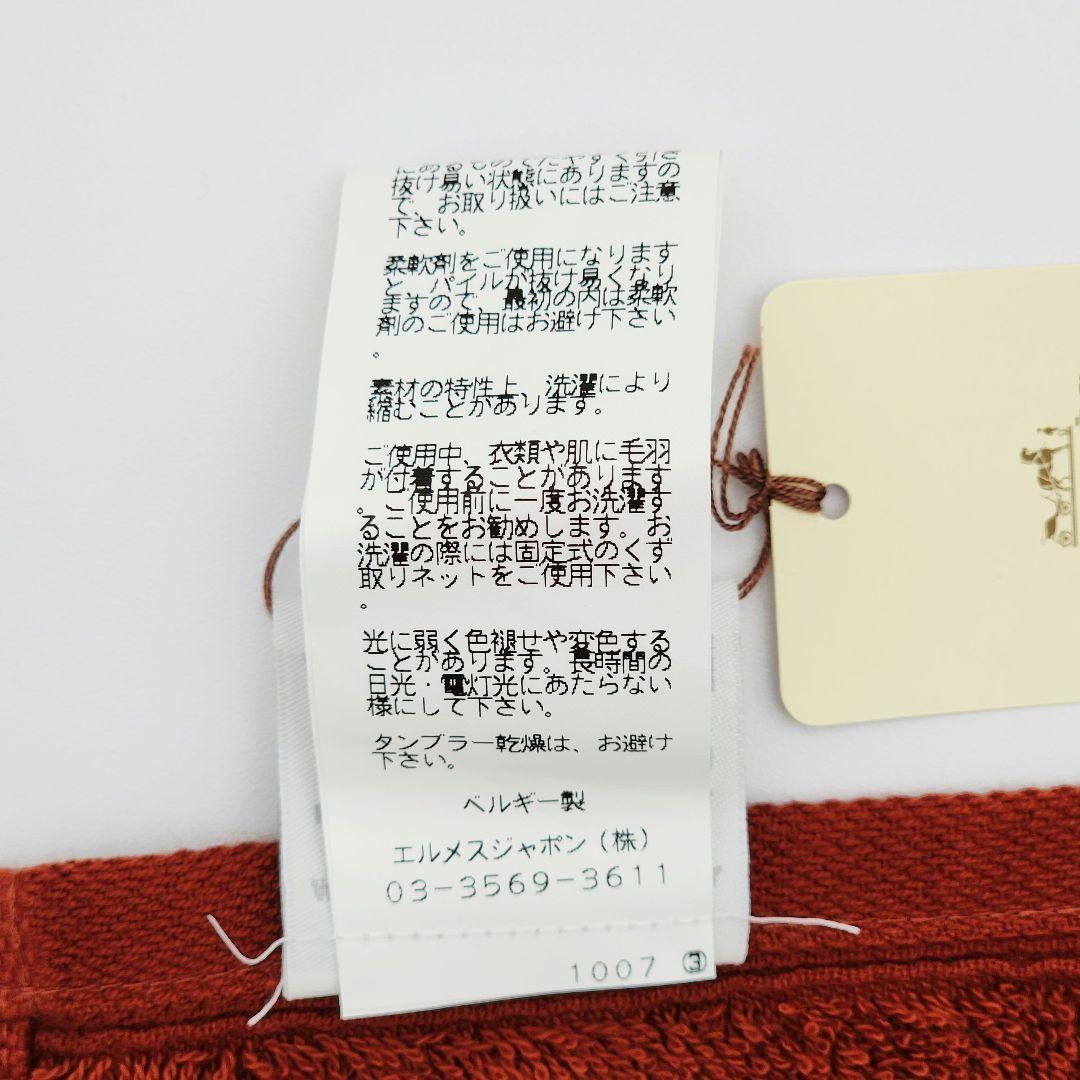 にあるものでたやすく引き
抜け易い状態にありますの
で、お取り扱いにはご注意
下さい。
柔軟剤をご使用になります
と、パイルが抜け易くなり
ますので、最初の内は柔軟
剤のご使用はお避け下さい
。
素材の特性上、洗濯により
縮むことがあります。
ご使用中、衣類や肌に毛羽
が付着することがあります
。ご使用前に一度お洗濯す
ることをお勧めします。お
洗濯の際には固定式のくず
取りネットをご使用下さい
。
光に弱く色褪せや変色する
ことがあります。長時間の
日光・電灯光にあたらない
様にして下さい。
タンブラー乾燥は、お避け
下さい。
ベルギー製
エルメスジャポン（株）
03-3569-3611
1007 ③